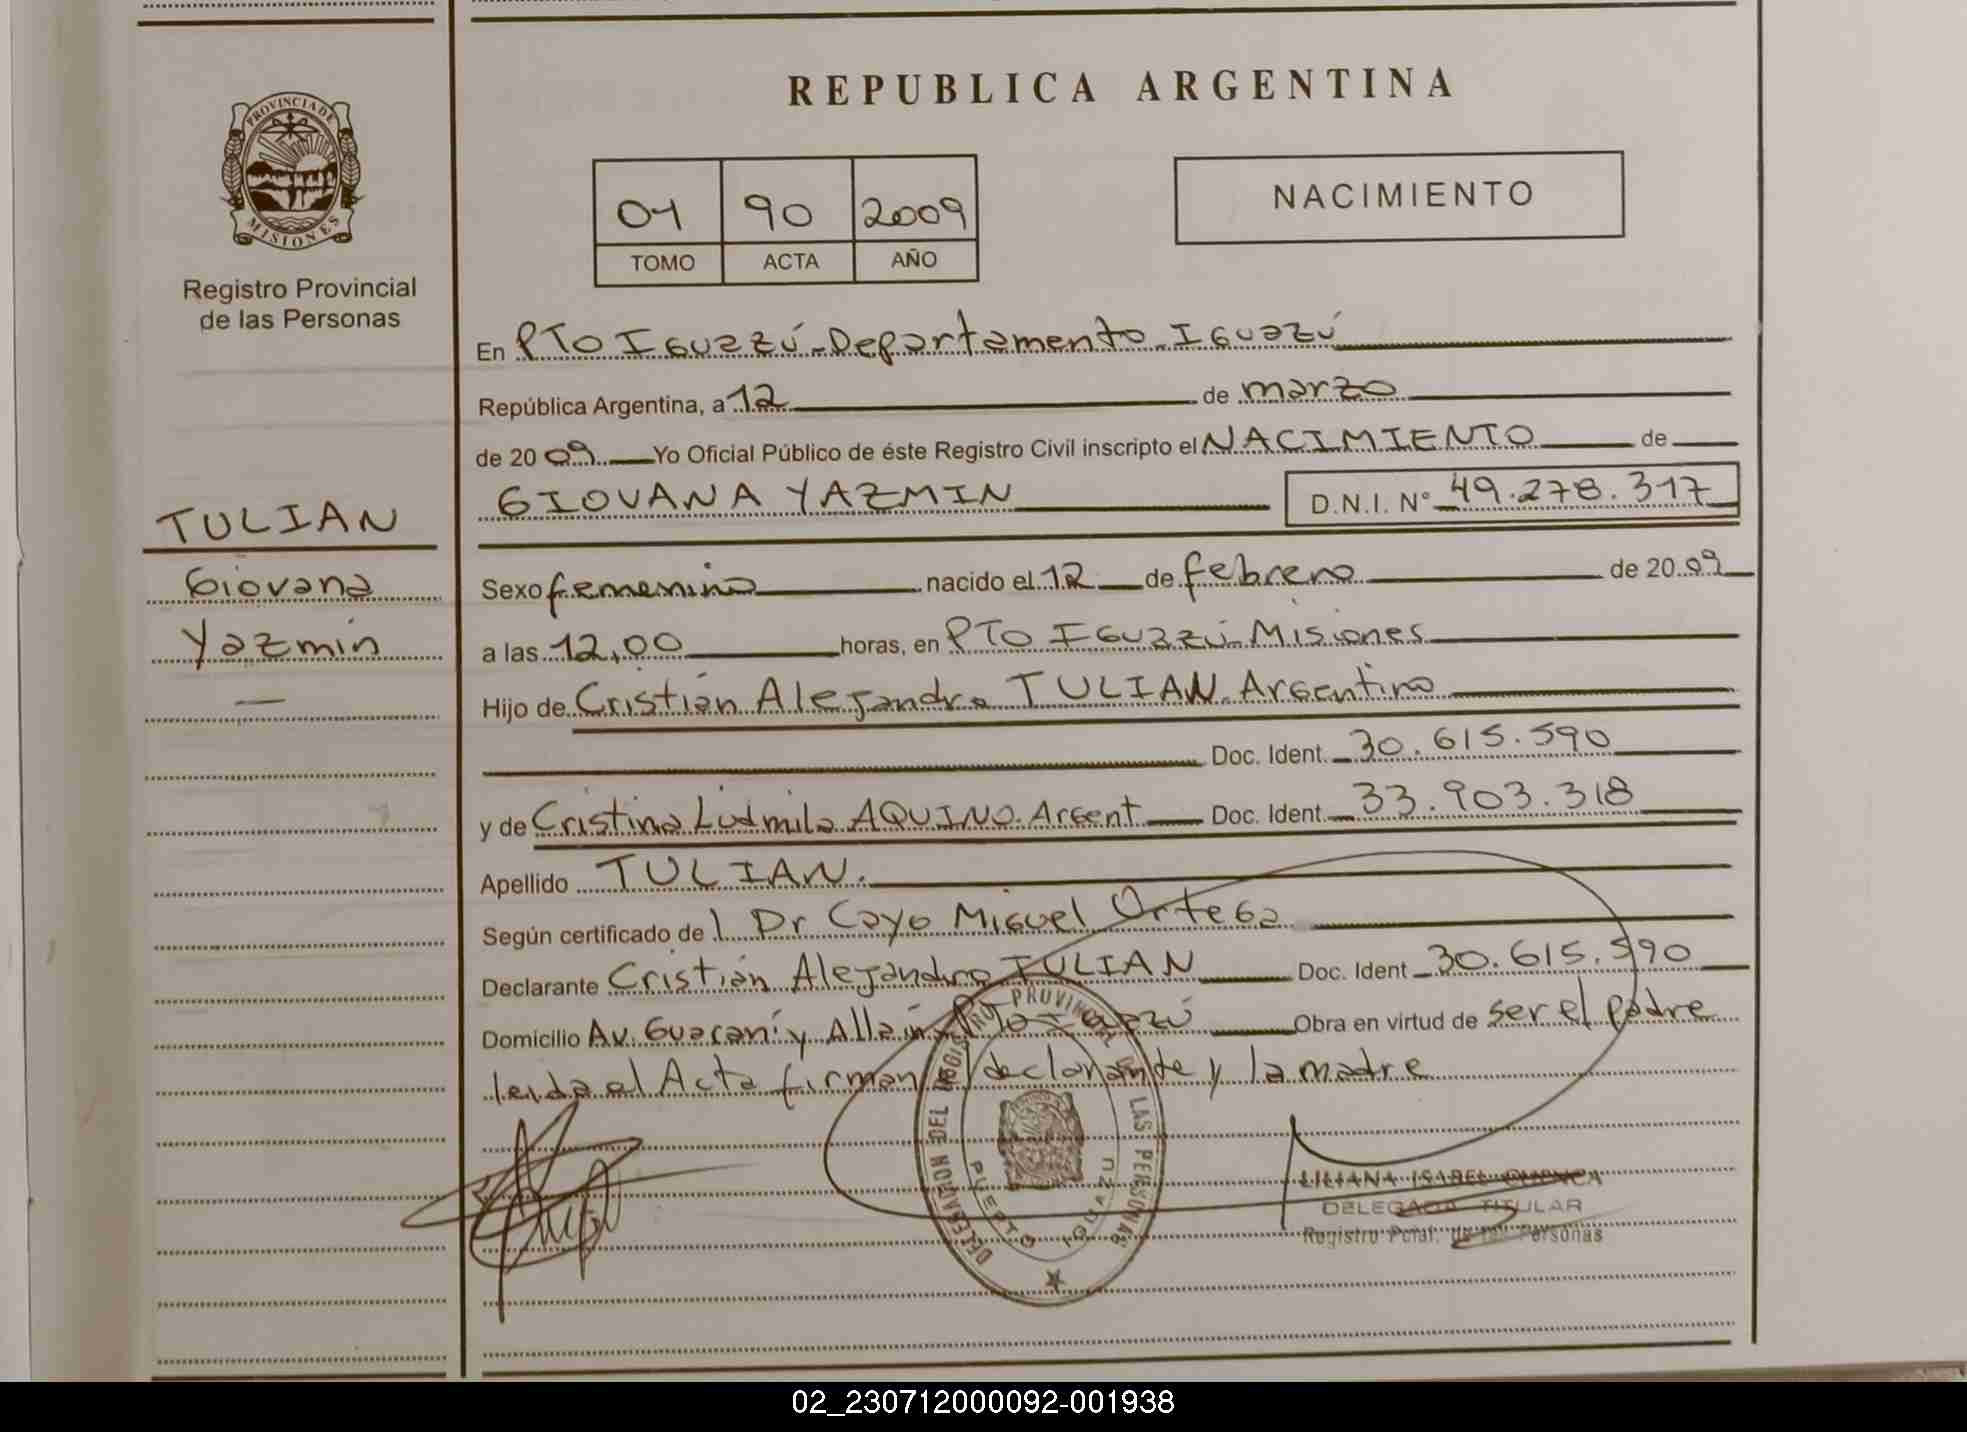 REPUBLICA ARGENTINA
PROVINCIA DE MISIONES
Registro Provincial
de las Personas
01 90 2009
TOMO ACTA AÑO
NACIMIENTO
En PTO IGUAZÚ-Departamento-IGUAZÚ
República Argentina, a 12 de marzo
de 2009 Yo Oficial Público de éste Registro Civil inscripto el NACIMIENTO de
GIOVANA YAZMIN D.N.I. N° 49.278.317
TULIAN
Giovana
Yazmin
Sexo femenino nacido el 12 de febrero de 2009
a las 12,00 horas, en PTO IGUAZÚ-Misiones
Hijo de Cristián Alejandro TULIAN-Argentino
Doc. Ident. 30.615.590
y de Cristina Ludmila AQUINO-Argent Doc. Ident. 33.903.318
Apellido TULIAN.
Según certificado de l Dr Cayo Miguel Ortega
Declarante Cristián Alejandro TULIAN Doc. Ident 30.615.590
Domicilio Av. Guaraní y Allaín PTO Iguazú Obra en virtud de ser el padre
leida el Acta firman declarante y la madre
DELEGACION DEL REGISTRO PROVINCIAL DE LAS PERSONAS
PUERTO IGUAZU
LILIANA ISABEL CUENCA
DELEGADA TITULAR
Registro Pcial. de las Personas
02_230712000092-001938